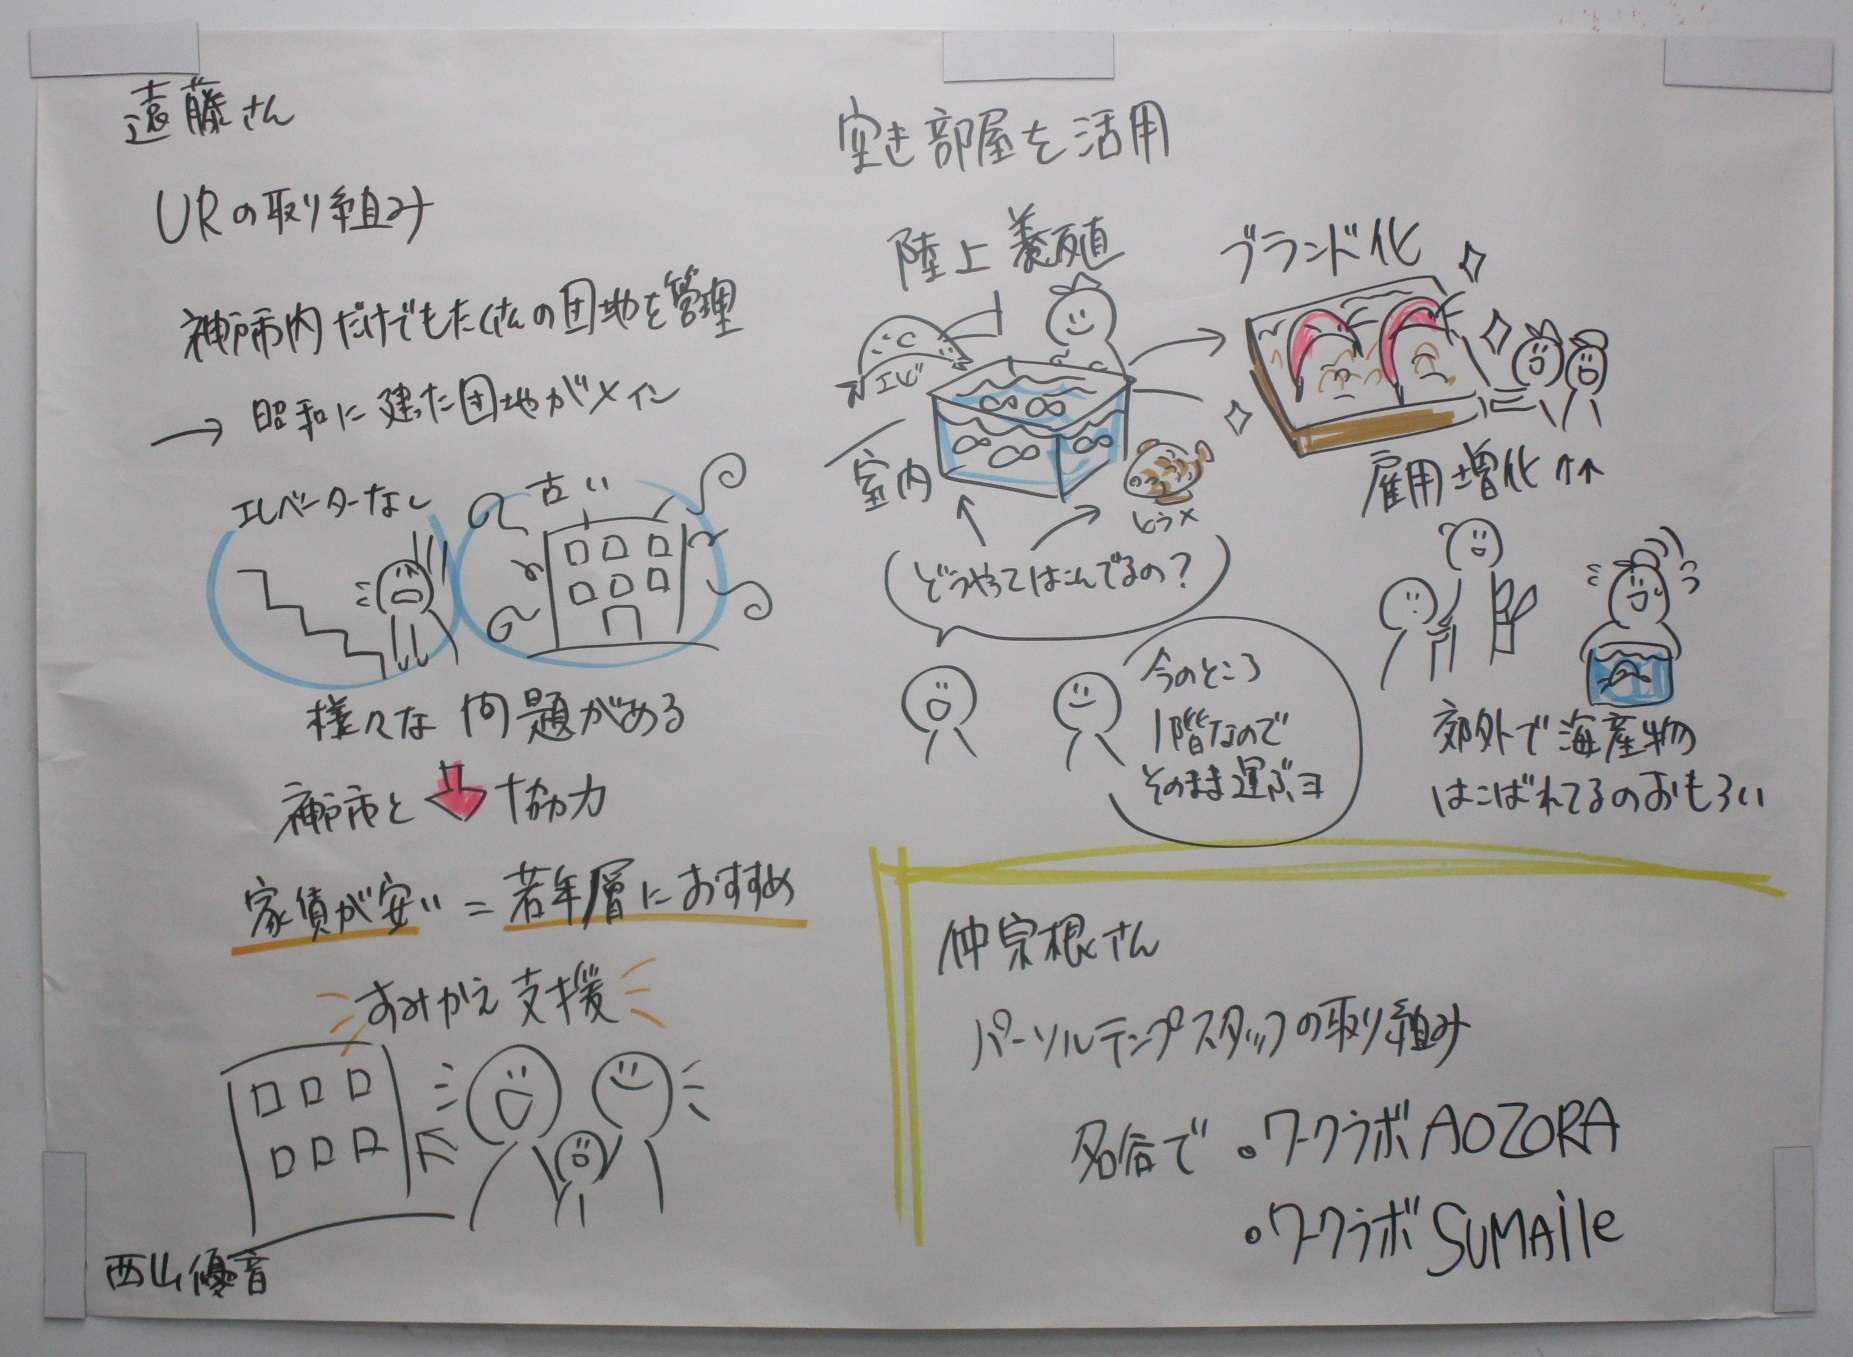 遠藤さん
URの取り組み
神戸市内だけでもたくさんの団地を管理
→ 昭和に建った団地がメイン
エレベーターなし
古い
様々な問題がある
神戸市と 協力
家債が安い = 若年層におすすめ
すみかえ支援
西山優音
空き部屋を活用
陸上養殖
エビ
室内
とらメ
どうやってはこんでるの?
今のところ
1階なので
そのまま運ぶヨ
ブランド化
雇用増化↑↑
郊外で海産物
はこばれてるのおもろい
仲宗根さん
パーソルテンプスタッフの取り組み
名谷で ・ワークラボAOZORA
・ワークラボSUMAile